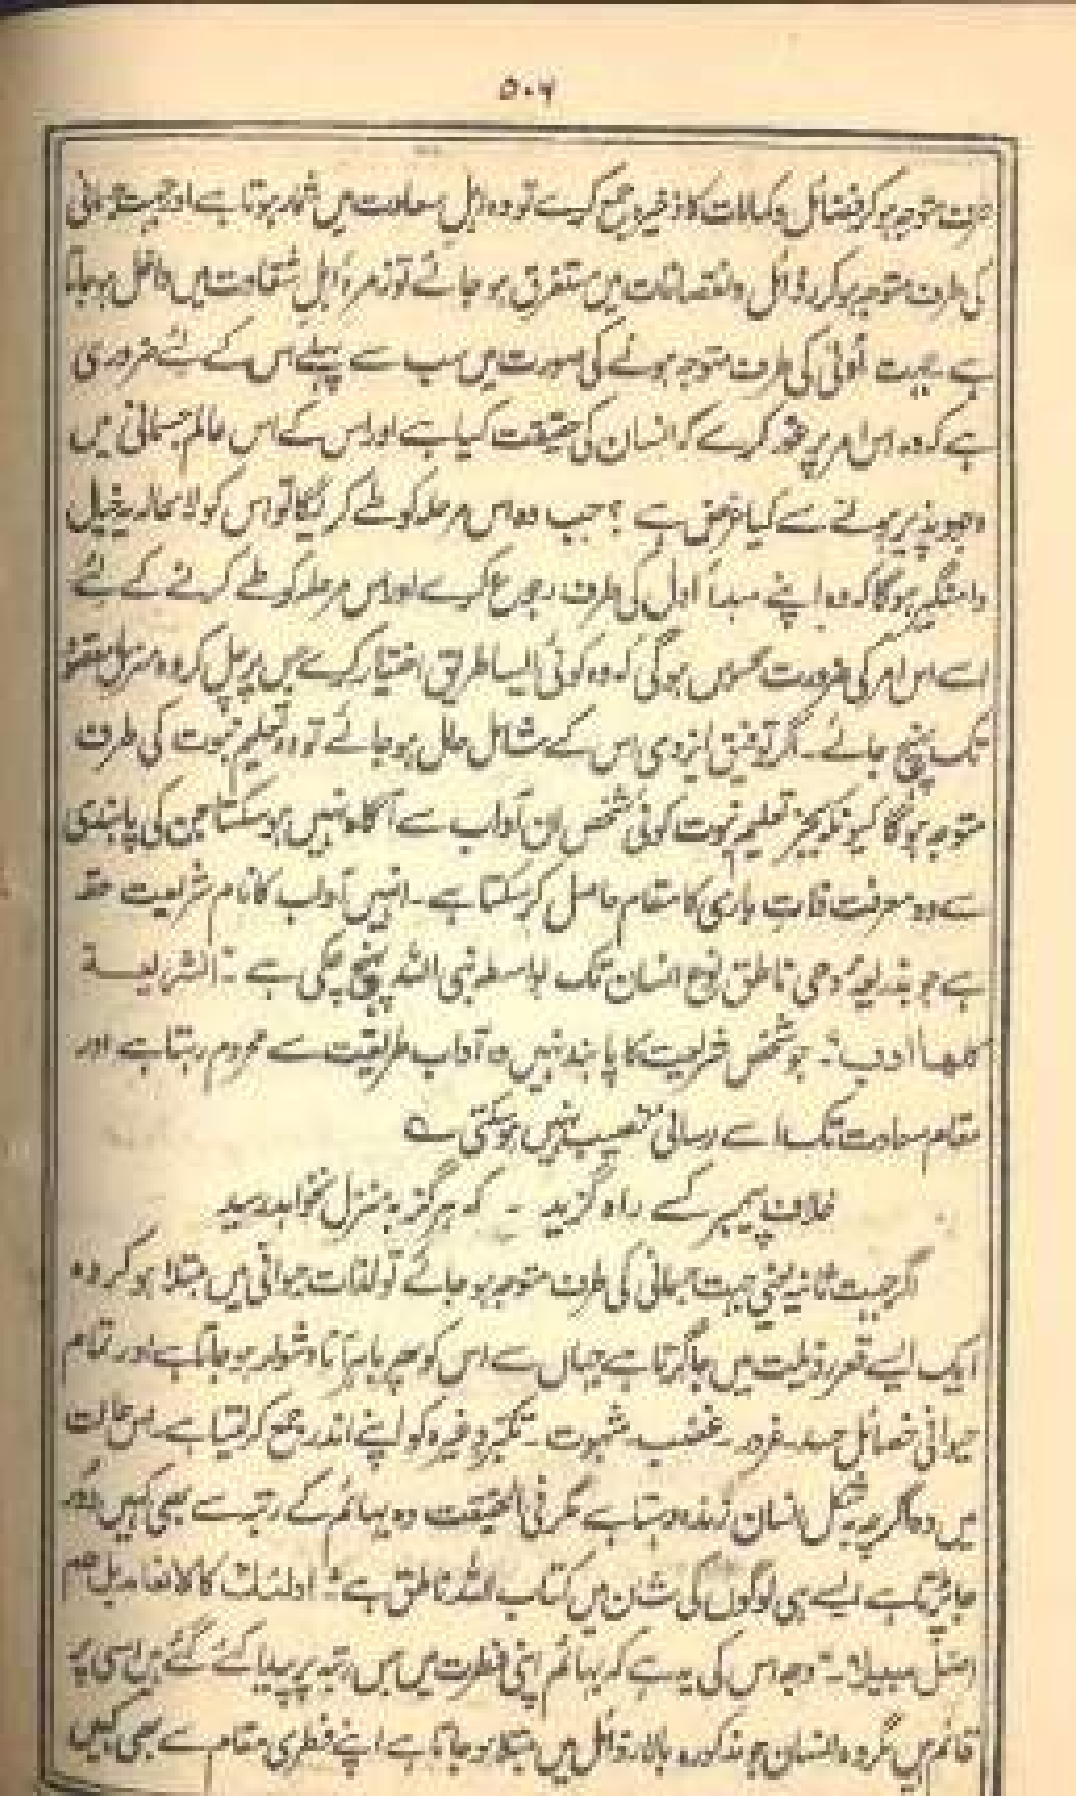 ۵۰۶
طرف متوجہ ہو کر فضائل و کمالات کا ذخیرہ جمع کرے تو وہ اہل سعادت میں شمار ہوتا ہے اور جہت جسمانی
کی طرف متوجہ ہو کر رذائل و نقصانات میں مستغرق ہو جائے تو زمرہ اہل شقاوت میں داخل ہو جاتا
ہے۔ جہت اُولیٰ کی طرف متوجہ ہونے کی صورت میں سب سے پہلے اس کے لئے ضروری
ہے کہ وہ اس امر پر غور کرے کہ انسان کی حقیقت کیا ہے اور اس کے اس عالم جسمانی میں
وجود پذیر ہونے سے کیا غرض ہے ؟ جب وہ اس مرحلہ کو طے کر لیگا تو اس کو لا محالہ یہ خیال
دامنگیر ہوگا کہ وہ اپنے مبداَ اول کی طرف رجوع کرے اور اس مرحلہ کو طے کرنے کے لئے
اسے اس امر کی ضرورت محسوس ہوگی کہ وہ کوئی ایسا طریق اختیار کرے جس پر چل کر وہ منزل مقصود
تک پہنچ جائے۔ اگر توفیق ایزدی اس کے شامل حال ہو جائے تو وہ تعلیم نبوت کی طرف
متوجہ ہوگا کیونکہ بجز تعلیم نبوت کوئی شخص ان آداب سے آگاہ نہیں ہو سکتا جن کی پابندی
سے وہ معرفت ذات باری کا مقام حاصل کر سکتا ہے۔ انہیں آداب کا نام شریعت حقہ
ہے جو بذریعہ وحی ناطق نوع انسان تک بواسطہ نبی اللہ پہنچ چکی ہے "الشریعۃ
کلھا ادب"۔ جو شخص شریعت کا پابند نہیں وہ آداب طریقت سے محروم رہتا ہے اور
مقام سعادت تک اسے رسائی نصیب نہیں ہو سکتی ؎
خلاف پیمبر کسے راہ گزید ۔ کہ ہرگز بہ منزل نخواہد رسید
اگر جہت ثانیہ یعنی جہت جسمانی کی طرف متوجہ ہو جائے تو لذات حیوانی میں مبتلا ہو کر وہ
ایک ایسے قعر رذیلت میں جا گرتا ہے جہاں سے اس کو پھر باہر آنا دشوار ہو جاتا ہے اور تمام
حیوانی خصائل حسد۔ غرور۔ غضب۔ شہوت۔ تکبر وغیرہ کو اپنے اندر جمع کر لیتا ہے۔ اس حالت
میں وہ اگرچہ بشکل انسان زندہ رہتا ہے مگر فی الحقیقت وہ بہائم کے رتبہ سے بھی کہیں دُور
جا پڑتا ہے ایسے ہی لوگوں کی شان میں کتاب اللہ ناطق ہے "اولئک کالانعام بل ھم
اضل سبیلا"۔ وجہ اس کی یہ ہے کہ بہائم اپنی فطرت میں جس رتبہ پر پیدا کئے گئے ہیں اسی پر
قائم ہیں مگر وہ انسان جو مذکورہ بالا رذائل میں مبتلا ہو جاتا ہے اپنے فطری مقام سے بھی کہیں